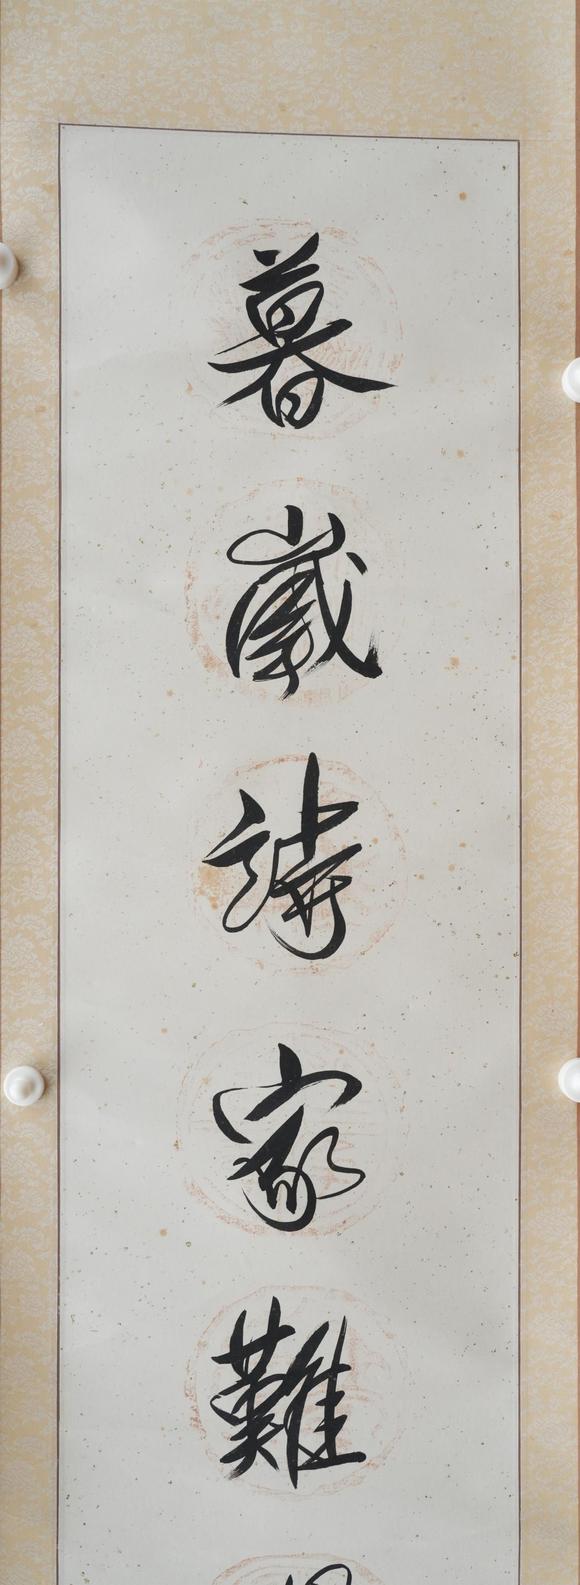 暮歲詩家難